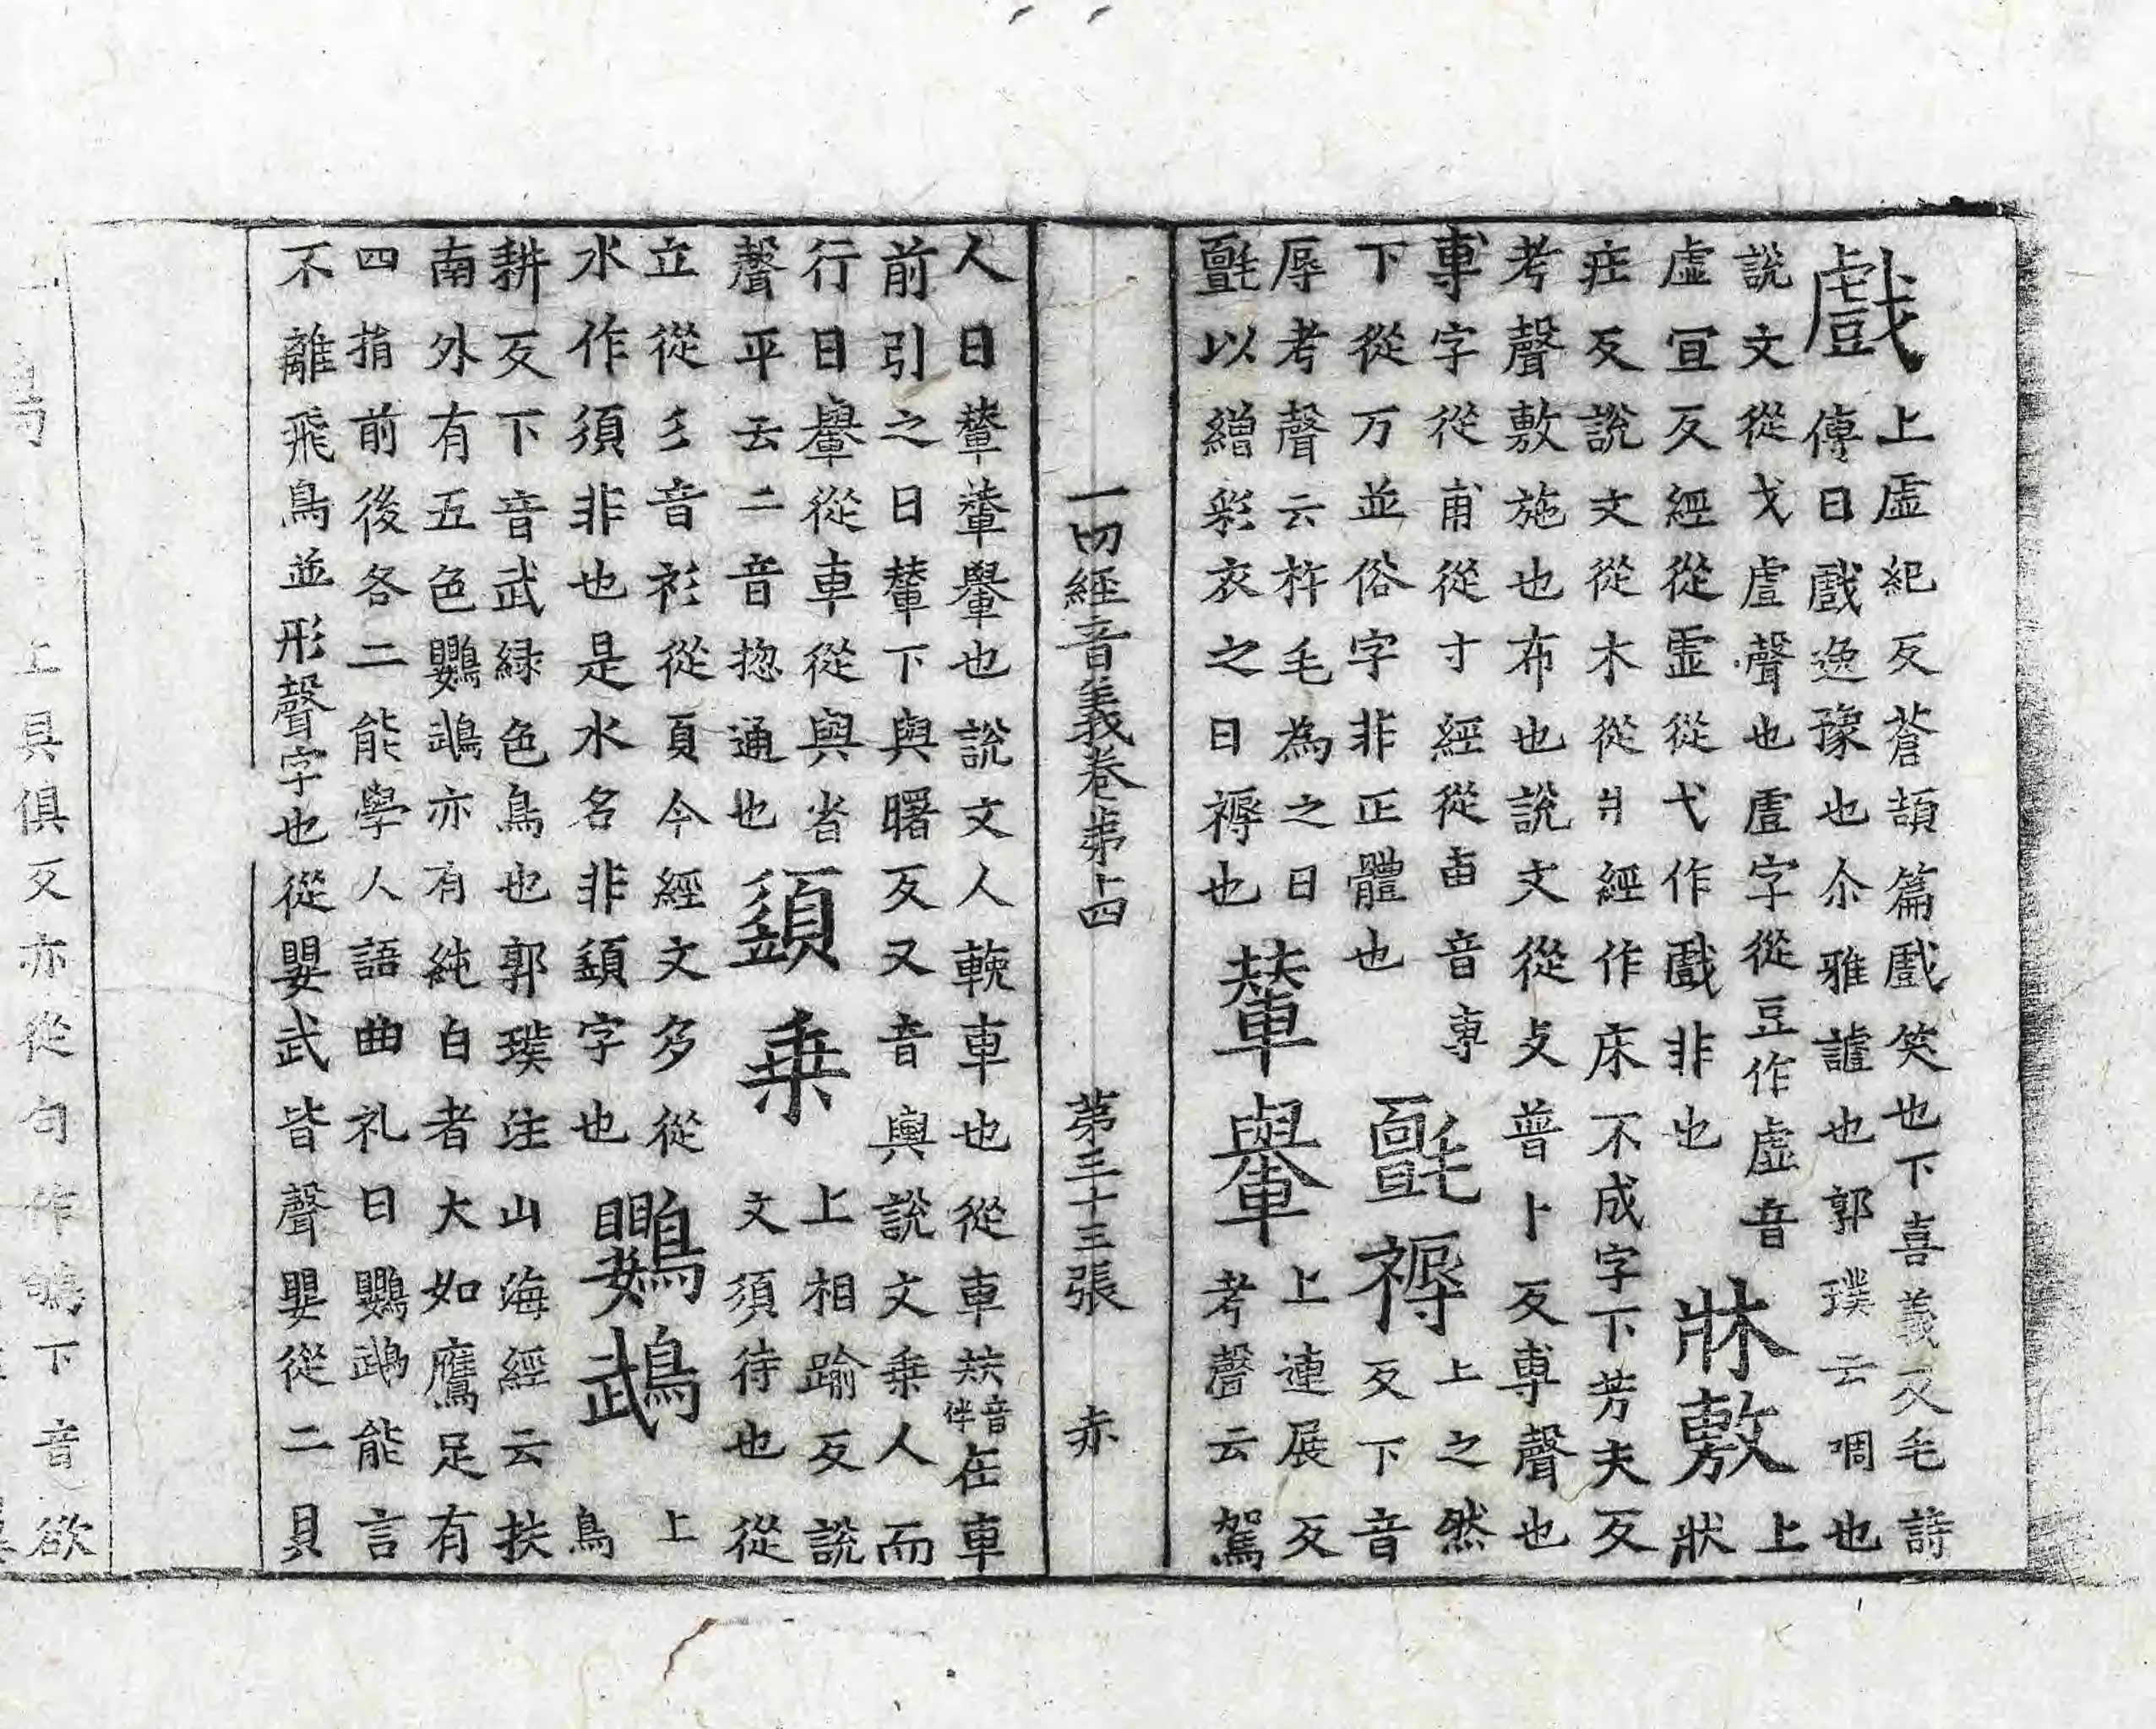 戲
上虛紀反蒼頡篇戲笑也下喜義反毛詩
傳曰戲逸豫也尒雅謔也郭璞云啁也
說文從戈䖒聲也䖒字從豆作虛音
虛宜反經從虛從弋作戲非也
牀敷
上
狀
疰反說文從木從爿經作床不成字下芳夫反
考聲敷施也布也說文從攴普卜反尃聲也
專字從甫從寸經從叀音專
下從万並俗字非正體也
氈褥
上之然
反下音
辱考聲云杵毛為之曰
氈以繒綵衣之曰褥也
輦轝
上連展反
考聲云駕
一切經音義卷第十四 第三十三張 赤
人曰輦輦轝也說文人輓車也從車㚘音伴在車
前引之曰輦下與曙反又音輿說文乗人而
行曰轝從車從與省
聲平去二音揔通也
䇓乗
上相踰反說
文須待也從
立從彡音衫從頁今經文多從
水作須非也是水名非䇓字也
鸚鵡
上
鳥
耕反下音武緑色鳥也郭璞注山海經云扶
南外有五色鸚鵡亦有純白者大如鷹足有
四指前後各二能學人語曲礼曰鸚鵡能言
不離飛鳥並形聲字也從嬰武皆聲嬰從二貝
上具俱反亦從句作鴝下音欲